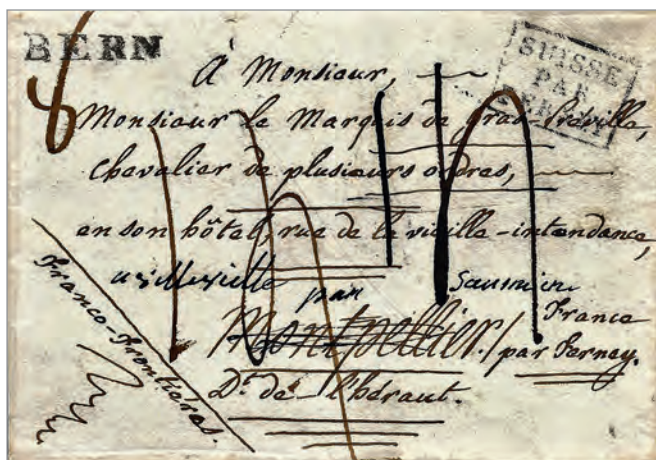 BERN
SUISSE
PAR
FERNEY
à Monsieur,
Monsieur le Marquis de
chevalier de plusieurs ordres,
en son hôtel, rue de la vieille-intendance,
par
Montpellier. / France
par Ferney.
Dt. de l'héraut.
Franco-Frontières.